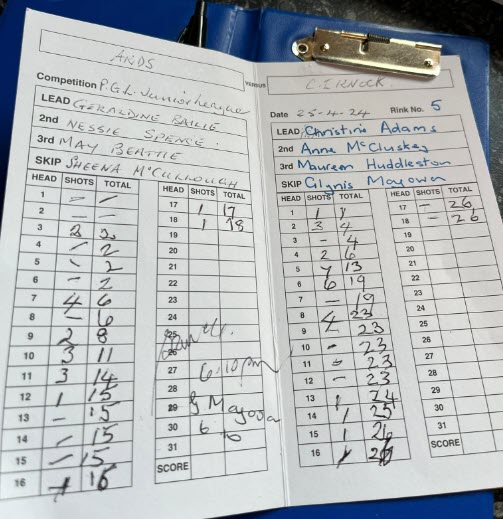 ARDS
Competition P.G.L. Junior League
LEAD GERALDINE BAILIE
2nd NESSIE SPENCE
3rd MAY BEATTIE
SKIP SHEENA McCULLOUGH
HEAD SHOTS TOTAL
1 - -
2 - -
3 2 2
4 - 2
5 - 2
6 - 2
7 4 6
8 - 6
9 2 8
10 3 11
11 3 14
12 1 15
13 - 15
14 - 15
15 - 15
16 1 16
HEAD SHOTS TOTAL
17 1 17
18 1 18
19
20
21
22
23
24
25
26
27 6.10pm
28
29
30
31
SCORE
VERSUS
Date 25-4-24 Rink No. 5
LEAD Christine Adams
2nd Anne McCluskey
3rd Maureen Huddleston
SKIP Glynis
HEAD SHOTS TOTAL
1 1 1
2 3 4
3 - 4
4 2 6
5 7 13
6 6 19
7 - 19
8 4 23
9 - 23
10 - 23
11 - 23
12 - 23
13 1 24
14 1 25
15 1 26
16 26
HEAD SHOTS TOTAL
17 - 26
18 - 26
19
20
21
22
23
24
25
26
27
28
29
30
31
SCORE